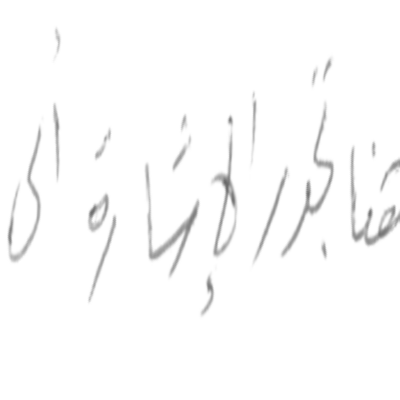 هنا تجدر الإشارة